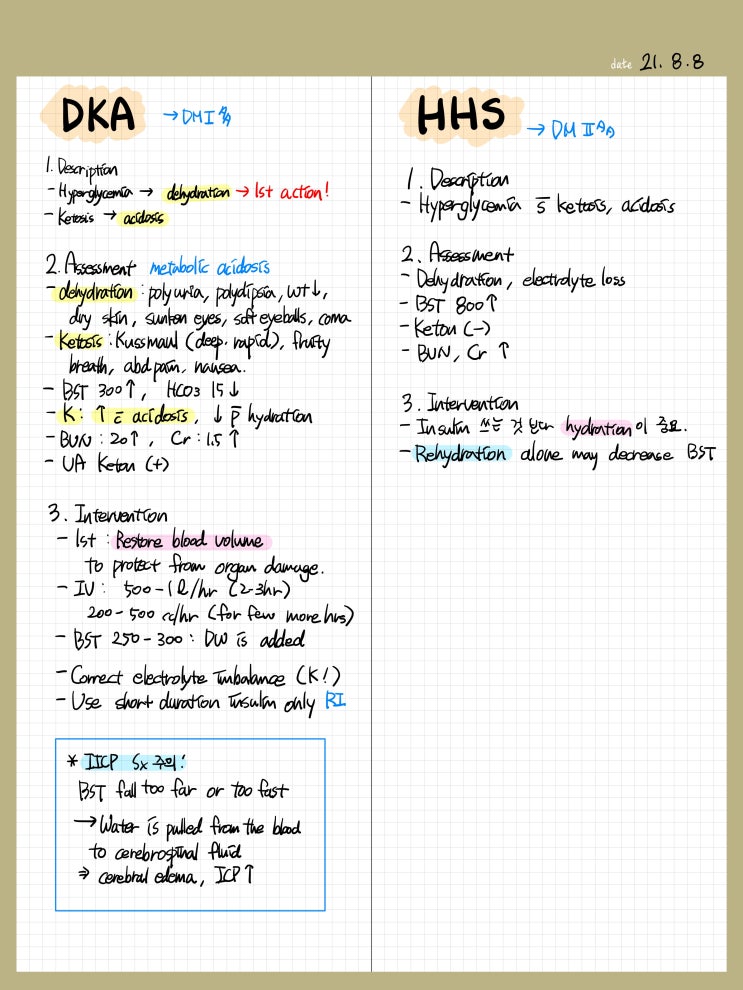 date 21. 8. 8
DKA → DM I
1. Description
- Hyperglycemia → dehydration → 1st action!
- Ketosis → acidosis
2. Assessment metabolic acidosis
- dehydration : polyuria, polydipsia, wt↓,
dry skin, sunken eyes, soft eyeballs, coma
- Ketosis : Kussmaul (deep. rapid), fruity
breath, abd pain, nausea.
- BST 300↑, HCO3 15↓
- K : ↑ c̄ acidosis, ↓ p̄ hydration
- BUN : 20↑, Cr : 1.5↑
- UA Keton (+)
3. Intervention
- 1st : Restore blood volume
to protect from organ damage.
- IV : 500-1ℓ/hr (2-3hr)
200-500 cc/hr (for few more hrs)
- BST 250-300 : DW is added
- Correct electrolyte imbalance (K!)
- Use short duration insulin only RI
* IICP Sx 주의!
BST fall too far or too fast
→ Water is pulled from the blood
to cerebrospinal fluid
⇒ cerebral edema, ICP↑
HHS → DM II
1. Description
- Hyperglycemia s̄ ketosis, acidosis
2. Assessment
- Dehydration, electrolyte loss
- BST 800↑
- Keton (-)
- BUN, Cr ↑
3. Intervention
- Insulin 쓰는 것 보다 hydration이 중요.
- Rehydration alone may decrease BST